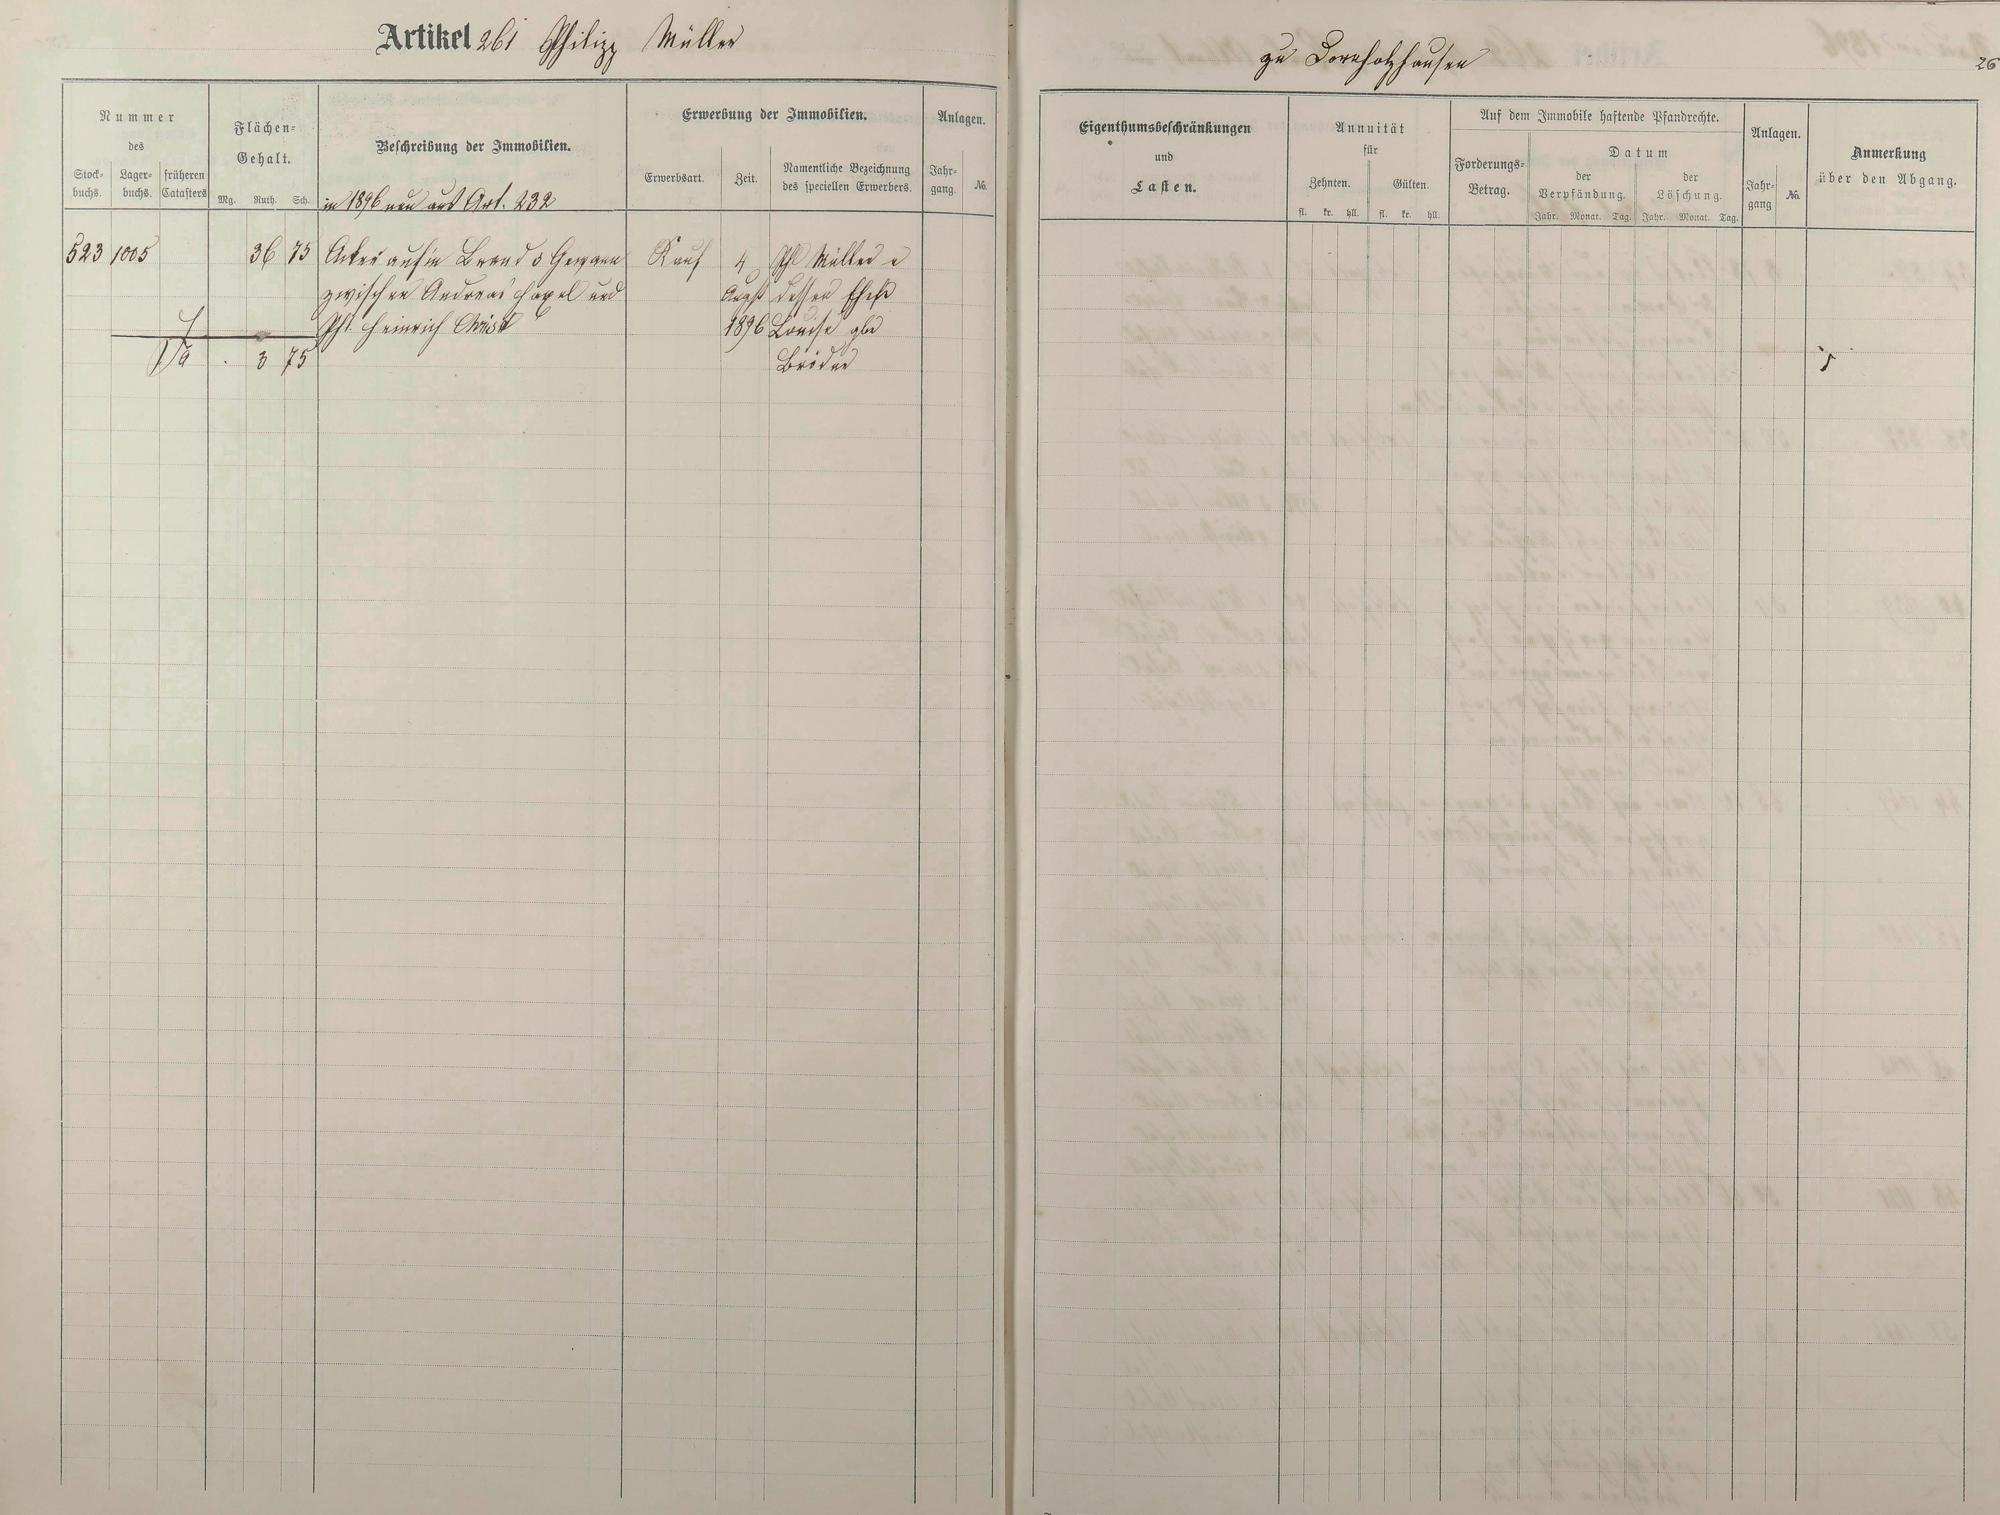 Artikel 261 Philipp Müller
zu Dornholzhausen
26
Nummer
des
Stock-
buchs.
Lager-
buchs.
früheren
Catasters
Flächen-
Gehalt.
Mg. Ruth. Sch.
Beschreibung der Immobilien.
in 1896 neu aus Art. 232
Erwerbung der Immobilien.
Erwerbsart.
Zeit.
Namentliche Bezeichnung
des speciellen Erwerbers.
Anlagen.
Jahr-
gang.
No.
Eigenthumsbeschränkungen
und
Lasten.
Annuität
für
Zehnten.
Gülten.
fl. kr. hll. fl. kr. hll.
Auf dem Immobile haftende Pfandrechte.
Forderungs-
Betrag.
Datum
der
Verpfändung.
der
Löschung.
Jahr. Monat. Tag. Jahr. Monat. Tag.
Anlagen.
Jahr-
gang
No.
Anmerkung
über den Abgang.
523 1005 36 75 Acker aufm Brand 3 Gewann Kauf 4 Phl Müller u
zwischen Andreas Hopel und August dessen Ehefr
Phl. Heinrich Christ 1896 Louise gbe
3 75